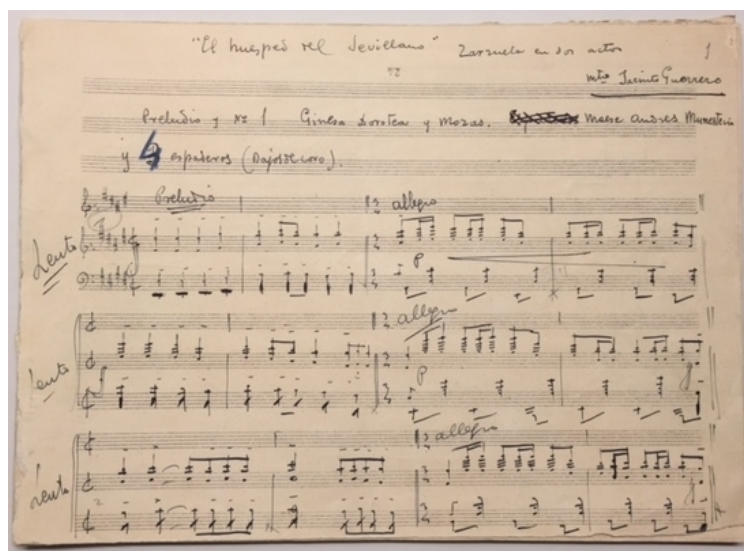 "El huesped del Sevillano" Zarzuela en dos actos 1
mtro Jacinto Guerrero
Preludio y Nº 1 Ginesa Dorotea y mozas. maese andres Munesteria
y 4 espaderos (Bajos de coro).
Preludio allegro
Lento
P
allegro
Lento
P
allegro
Lento